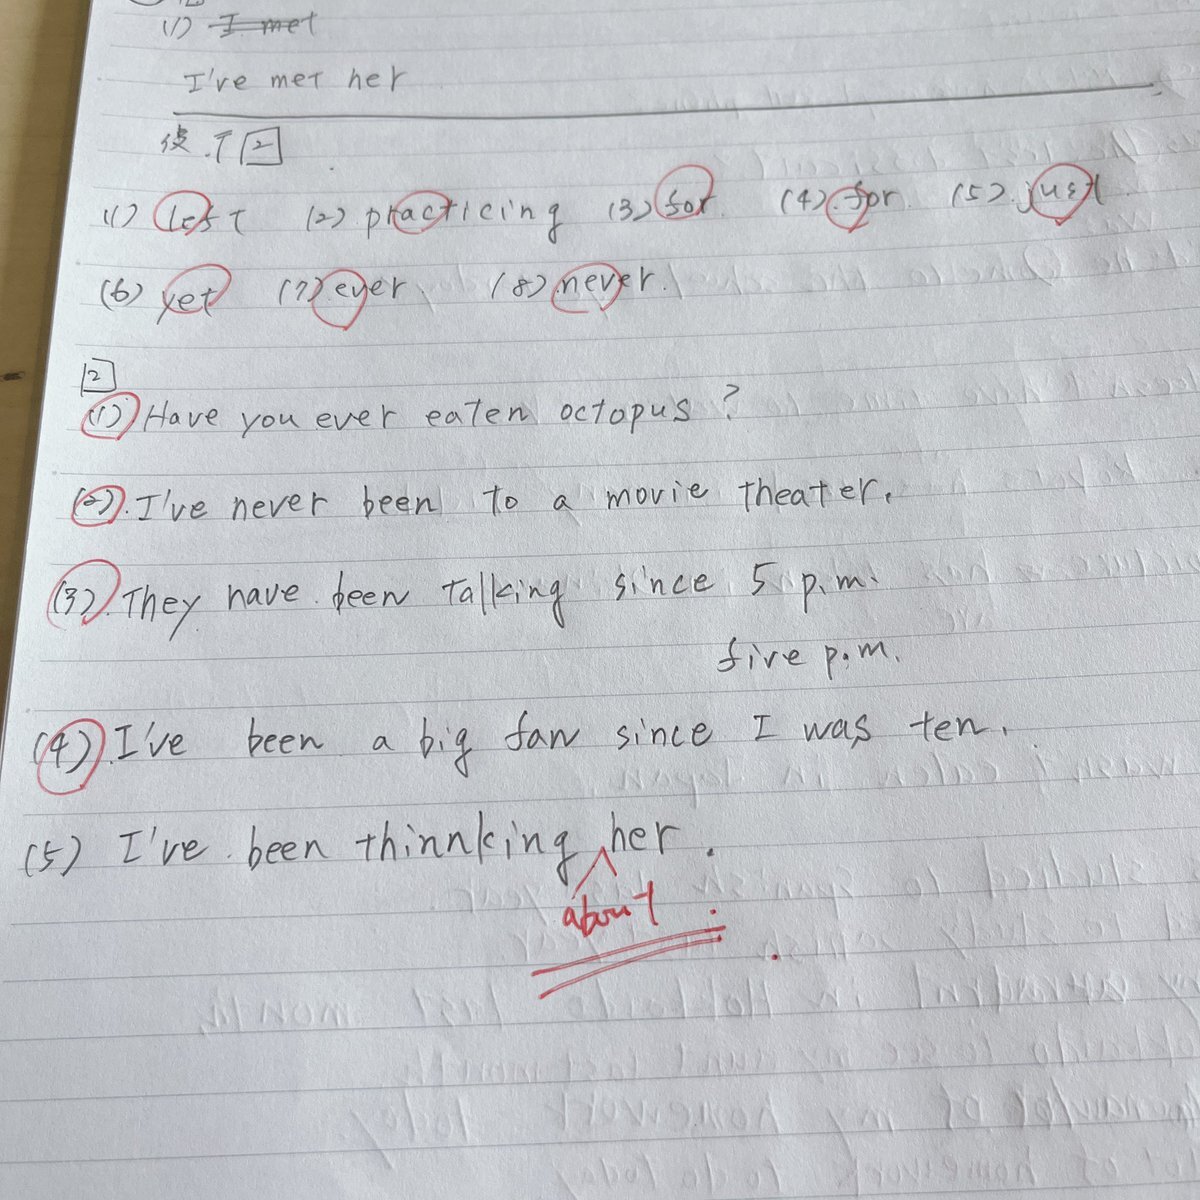 (1) I met
I've met her
復.T 2
(1) left (2) practicing (3) for (4) for (5) just
(6) yet (7) ever (8) never.
2
(1) Have you ever eaten octopus ?
(2). I've never been to a movie theater.
(3). They have been talking since 5 p.m.
five p.m.
(4). I've been a big fan since I was ten.
(5) I've been thinnking her.
about